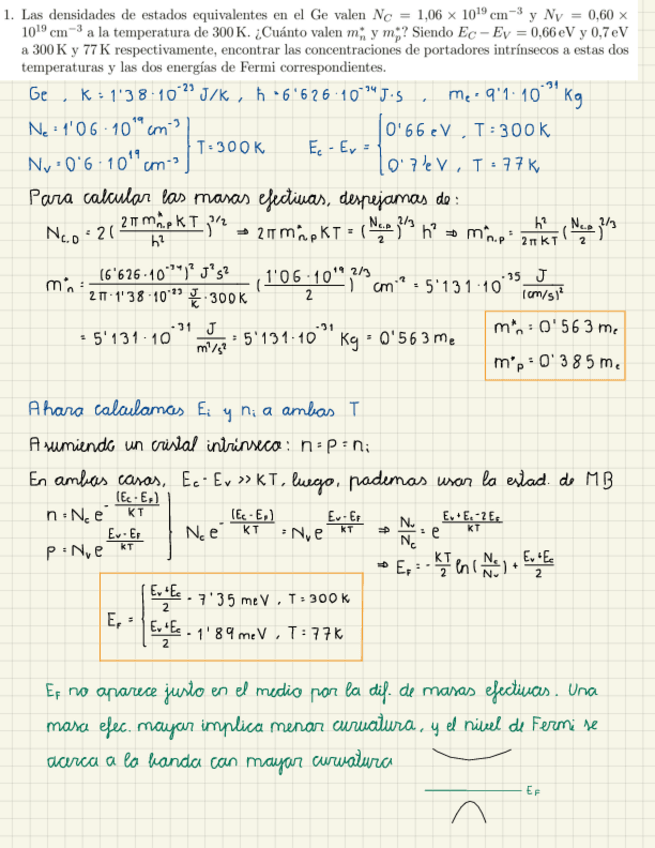 1. Las densidades de estados equivalentes en el Ge valen N_C = 1,06 × 10^19 cm^−3 y N_V = 0,60 ×
10^19 cm^−3 a la temperatura de 300 K. ¿Cuánto valen m*_n y m*_p? Siendo E_C − E_V = 0,66 eV y 0,7 eV
a 300 K y 77 K respectivamente, encontrar las concentraciones de portadores intrínsecos a estas dos
temperaturas y las dos energías de Fermi correspondientes.
Ge , K = 1'38 · 10^-23 J/K , h = 6'626 · 10^-34 J·s , m_e = 9'1 · 10^-31 Kg
N_c = 1'06 · 10^19 cm^-3
N_v = 0'6 · 10^19 cm^-3 } T = 300 K E_c - E_v = { 0'66 eV , T = 300 K
0'7 eV , T = 77 K
Para calcular las masas efectivas, despejamos de :
N_c,D = 2 ( 2π m*_n,p K T / h² )^3/2 ⇒ 2π m*_n,p K T = ( N_c,D / 2 )^2/3 h² ⇒ m*_n,p = h² / 2π K T ( N_c,D / 2 )^2/3
m*_n = (6'626 · 10^-34)² J² s² / 2π · 1'38 · 10^-23 J/K · 300 K ( 1'06 · 10^19 / 2 )^2/3 cm^-2 = 5'131 · 10^-35 J / (cm/s)²
= 5'131 · 10^-31 J / m²/s² = 5'131 · 10^-31 Kg = 0'563 m_e
m*_n = 0'563 m_e
m*_p = 0'385 m_e
Ahora calculamos E_i y n_i a ambas T
Asumiendo un cristal intrínseco : n = p = n_i
En ambos casos, E_c - E_v >> KT, luego, podemos usar la estad. de MB
n = N_c e^-(E_c - E_F)/KT
p = N_v e^(E_v - E_F)/KT } N_c e^-(E_c - E_F)/KT = N_v e^(E_v - E_F)/KT ⇒ N_v / N_c = e^(E_v + E_c - 2E_F)/KT
⇒ E_F = - KT/2 ln ( N_c / N_v ) + E_v + E_c / 2
E_F = { E_v + E_c / 2 - 7'35 meV , T = 300 K
E_v + E_c / 2 - 1'89 meV , T = 77 K
E_F no aparece justo en el medio por la dif. de masas efectivas. Una
masa efec. mayor implica menor curvatura, y el nivel de Fermi se
acerca a la banda con mayor curvatura
E_F